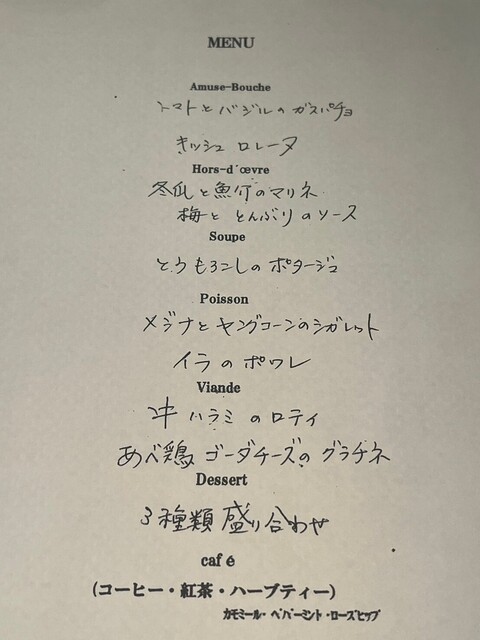 MENU
Amuse-Bouche
トマトとバジルのガスパチョ
キッシュ ロレーヌ
Hors-d´œvre
冬瓜と魚介のマリネ
梅ととんぶりのソース
Soupe
とうもろこしのポタージュ
Poisson
メジナとヤングコーンのシガレット
イラのポワレ
Viande
牛ハラミのロティ
あべ鶏 ゴーダチーズのグラチネ
Dessert
3種類盛り合わせ
café
(コーヒー・紅茶・ハーブティー)
カモミール・ペパーミント・ローズヒップ